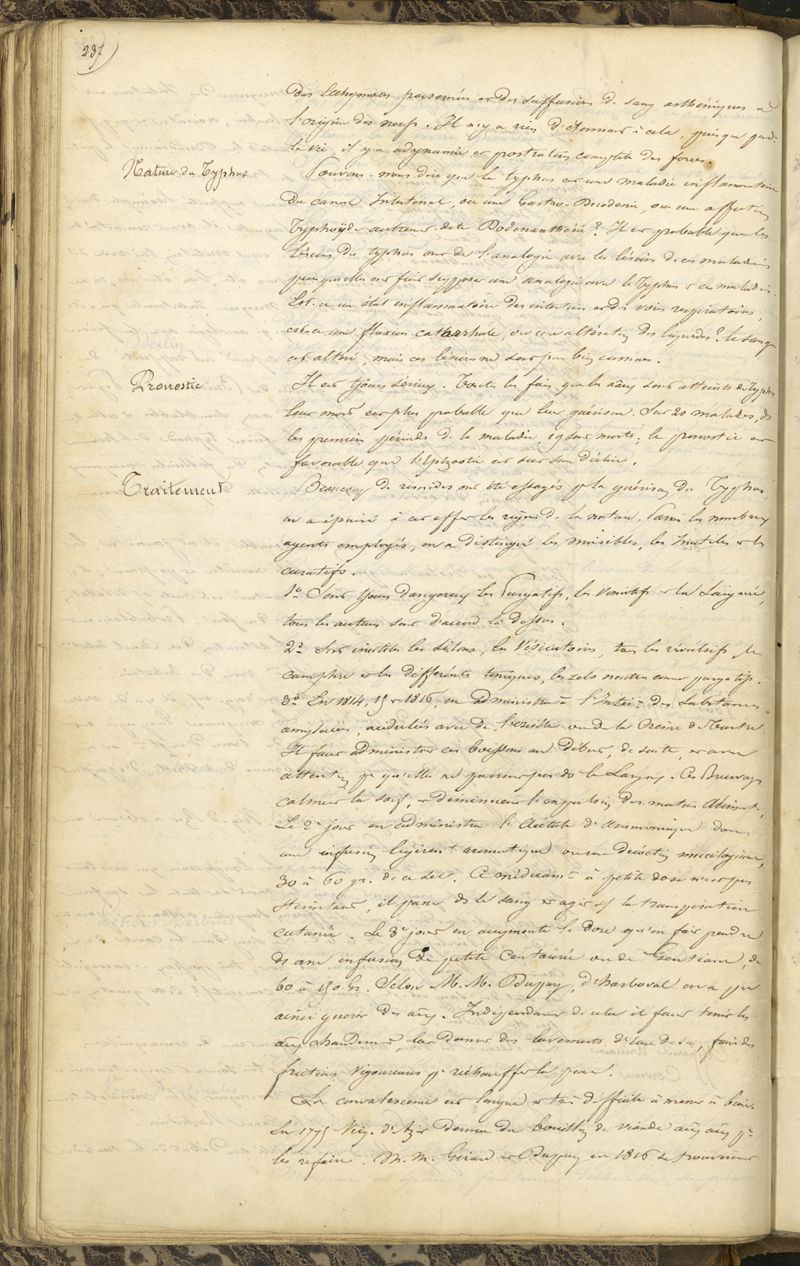 237)
des Ecchymoses parsemées et des suffusions de sang asthéniques à
l'origine des nerfs. Il n'y a rien d'étonnant à cela, puisque pndt
la vie, il y a adynamie et prostration complète des forces.
Nature du Typhus
Pouvons-nous dire que le typhus est une maladie inflammatoire
du canal Intestinal, ou une Gastro-Duodenie, ou une affection
Typhoïde autrement dite ? Il est probable que les
lésions du typhus ont de l'analogie avec les lésions de ces maladies
puisqu'elles ont fait supposer une analogie entre le Typhus & ces maladies.
Est-ce un état inflammatoire des intestins et des voies respiratoires,
est-ce une fluxion catarrhale, ou une altération des liquides? le sang
est altéré, mais ces lésions ne sont pas bien connues.
Pronostic
Il est tjours sérieux. Toutes les fois que les aux sont atteints du Typhus
leur mort est plus probable que leur guérison. Sur 20 malades, ds
les premières périodes de la maladie, 19 sont morts; le pronostic est
favorable quand l'Epizootie est sur son déclin.
Traitement
Beaucoup de remèdes ont été essayés pr la guérison du Typhus,
on a épuisé à cet effet les règnes de la nature. Parmi les nombreux
agents employés, on a distingué les nuisibles, les Inutiles et les
curatifs.
1o Sont tjours dangereux les Purgatifs, les Vomitifs et la Saignée,
tous les auteurs sont d'accord là dessus.
2o Sont inutiles les Sétons, les Vésicatoires, tous les révulsifs, le
camphre et les différents toniques, les sels neutres comme purgatifs.
3o En 1814, 15 et 1816, on administra à l'Intér. des Substances
amylacées, acidulées avec de l'oseille ou de la Crème de Tartre.
Il faut administrer ces boissons au début, de suite, et avec
attention pr qu'elles ne passent pas ds le Larynx. Ces Breuvages
calment la soif, et diminuent l'expulsion des matières
Le 2e jour on administre l'Acétate d'Ammoniaque dans
une infusion légèremt aromatique ou une décoction mucilagineuse,
30 à 60 gr. de ce sel. Ce médicamt à petite dose n'est pas
stimulant, il passe ds le sang et agit sr la transpiration
cutanée. Le 3e jour on augmente la dose qu'on fait prendre
ds une infusion de petite centaurée ou de Gentiane, de
60 à 150 Gr. Selon M.M. Dupuy, d'Arboval on a pu
ainsi guérir des aux. Indépendamt de cela il faut tenir les
aux chaudement, leur donner des lavements d'eau de son, faire des
frictions vigoureuses pr réchauffer la peau.
La convalescence est longue et très difficile à mener à bien.
En 1775 Vicq. d'Azir donna du bouillon de viande aux aux pr
les refaire. M.M. Girard et Dupuy en 1816 se trouvèrent